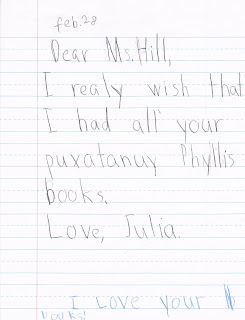 feb.28
Dear Ms. Hill,
I realy wish that
I had all your
puxatanuy Phyllis
books.
Love, Julia.
I Love your
books!